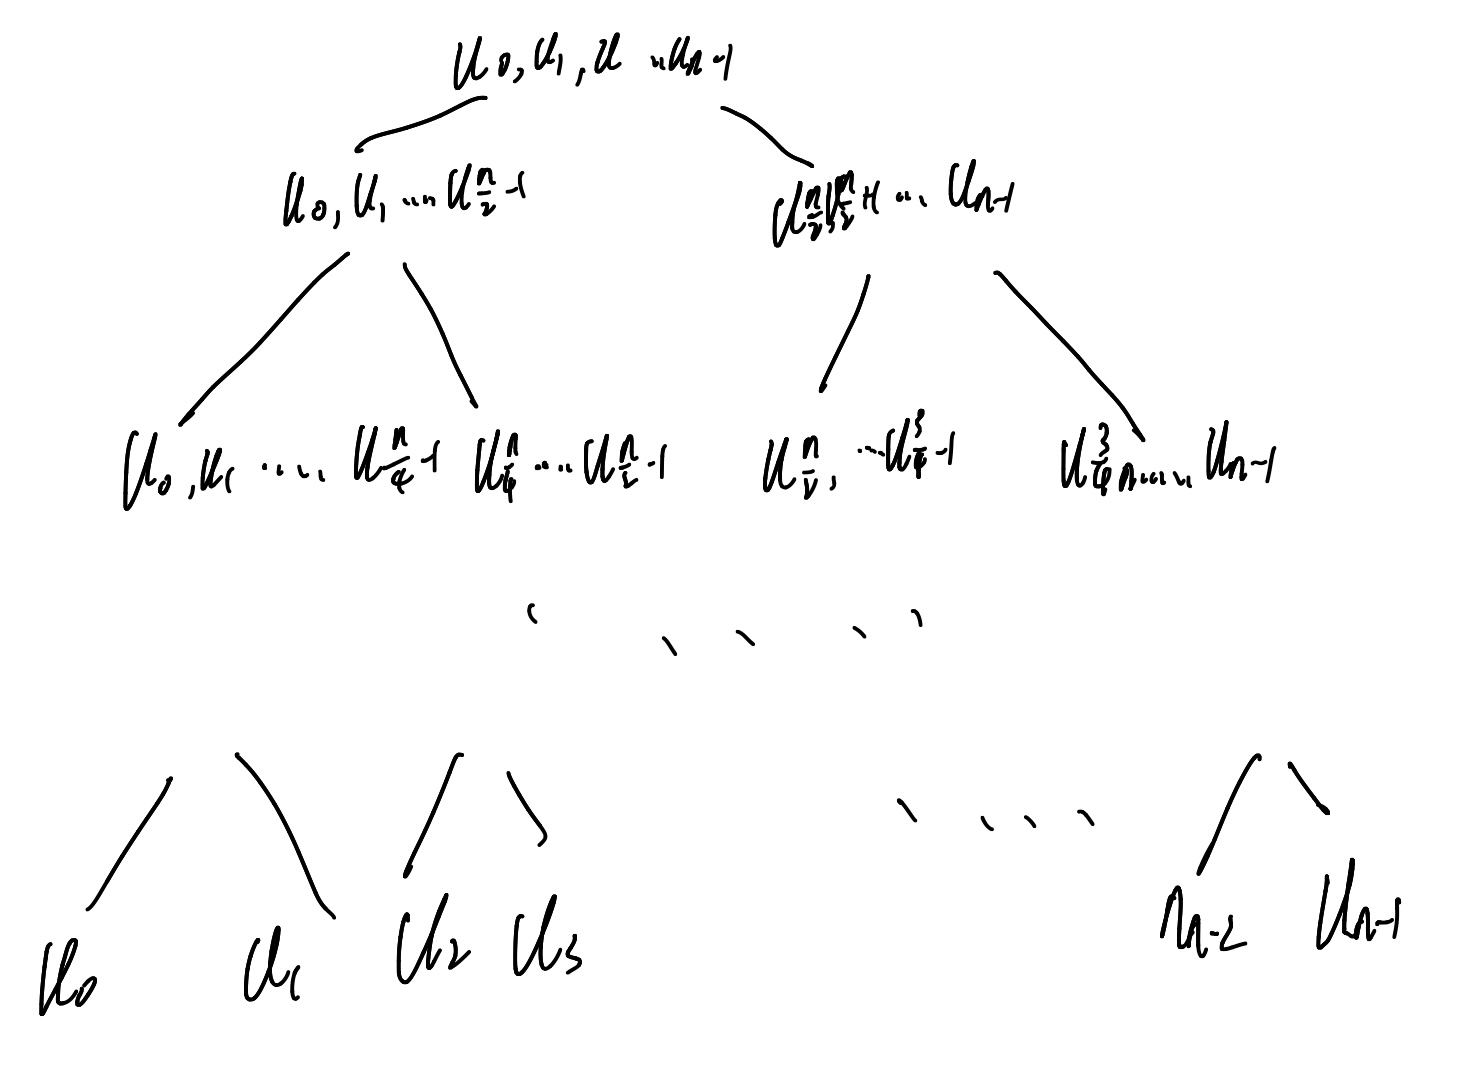 u₀, u₁, u ... uₙ₋₁
u₀, u₁ .... u_{n/2 -1} u_{n/2}, u_{n/2 +1} .... u_{n-1}
u₀, u₁ ..... u_{n/4 -1} u_{n/4} .... u_{n/2 -1} u_{n/2}, ....u_{3/4 -1} u_{3/4 n}..... u_{n-1}
. . . . .
. . . .
u₀ u₁ u₂ u₃ n_{n-2} u_{n-1}